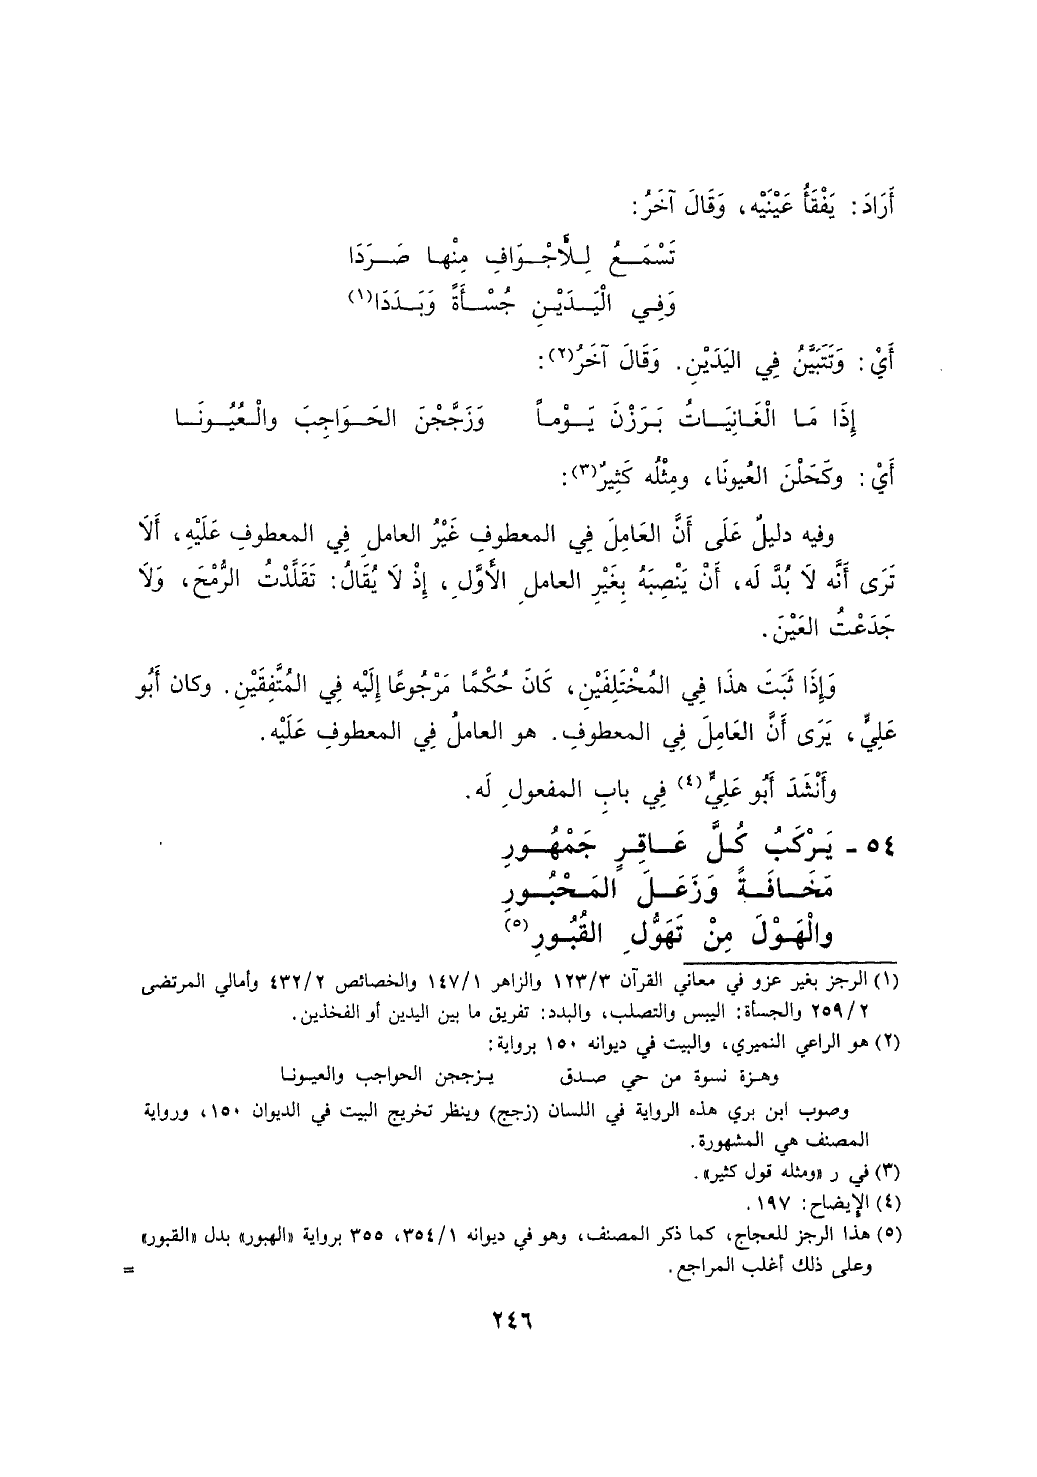 أَرَادَ: يَفْقَأُ عَيْنَيْه، وَقَالَ آخَرُ:
تَسْمَـــعُ لِـلْأَجْـوَافِ مِنْهـا صَـــرَدَا
وَفِـي الْيَـدَيْـنِ جُسْــأَةً وَبَــدَدَا(١)
أَيْ: وَتَتَبَيَّنُ فِي اليَدَيْنِ. وَقَالَ آخَرُ(٢):
إِذَا مَـا الْغَـانِيَـاتُ بَـرَزْنَ يَـوْمـاً وَزَجَّجْنَ الحَـوَاجِبَ والْعُيُـونَـا
أَيْ: وكَحَلْنَ العُيونَا، ومِثْلُه كَثِيرٌ(٣):
وفيه دليلٌ عَلَى أَنَّ العَامِلَ فِي المعطوفِ غَيْرُ العاملِ فِي المعطوفِ عَلَيْهِ، أَلَا
تَرَى أَنَّه لَا بُدَّ لَه، أَنْ يَنْصِبَهُ بِغَيْرِ العاملِ الأَوَّلِ، إِذْ لَا يُقَالُ: تَقَلَّدْتُ الرُّمْحَ، وَلَا
جَدَعْتُ العَيْنَ.
وَإِذَا ثَبَتَ هذَا فِي المُخْتَلِفَيْنِ، كَانَ حُكْمًا مَرْجُوعًا إِلَيْه فِي المُتَّفِقَيْنِ. وكان أَبُو
عَلِيٍّ، يَرَى أَنَّ العَامِلَ فِي المعطوفِ. هو العاملُ فِي المعطوفِ عَلَيْه.
وأَنْشَدَ أَبُو عَلِيٍّ(٤) فِي بابِ المفعولِ لَه.
٥٤ - يَـرْكَبُ كُـلَّ عَـاقِـرٍ جَمْهُـورِ
مَخَـافَـةً وَزَعَـلَ المَحْبُـورِ
والْهَـوْلَ مِنْ تَهَوُّلِ القُبُـورِ(٥)
(١) الرجز بغير عزو في معاني القرآن ١٢٣/٣ والزاهر ١٤٧/١ والخصائص ٤٣٢/٢ وأمالي المرتضى
٢٥٩/٢ والجسأة: اليبس والتصلب، والبدد: تفريق ما بين اليدين أو الفخذين.
(٢) هو الراعي النميري، والبيت في ديوانه ١٥٠ برواية:
وهـزة نسوة من حي صـدق يـزججن الحواجب والعيونـا
وصوب ابن بري هذه الرواية في اللسان (زجج) وينظر تخريج البيت في الديوان ١٥٠، ورواية
المصنف هي المشهورة.
(٣) في ر «ومثله قول كثير».
(٤) الإيضاح: ١٩٧.
(٥) هذا الرجز للعجاج، كما ذكر المصنف، وهو في ديوانه ٣٥٤/١، ٣٥٥ برواية «الهبور» بدل «القبور»
وعلى ذلك أغلب المراجع.
=
٢٤٦